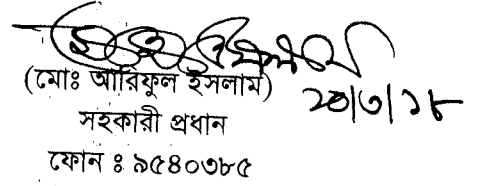 (মোঃ আরিফুল ইসলাম)
২০/৩/১৮
সহকারী প্রধান
ফোন ঃ ৯৫৪০৩৮৫